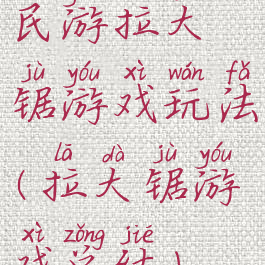 民游拉大
jù yóu xì wán fǎ
锯游戏玩法
lā dà jù yóu
(拉大锯游
xì zǒng jié
戏总结)